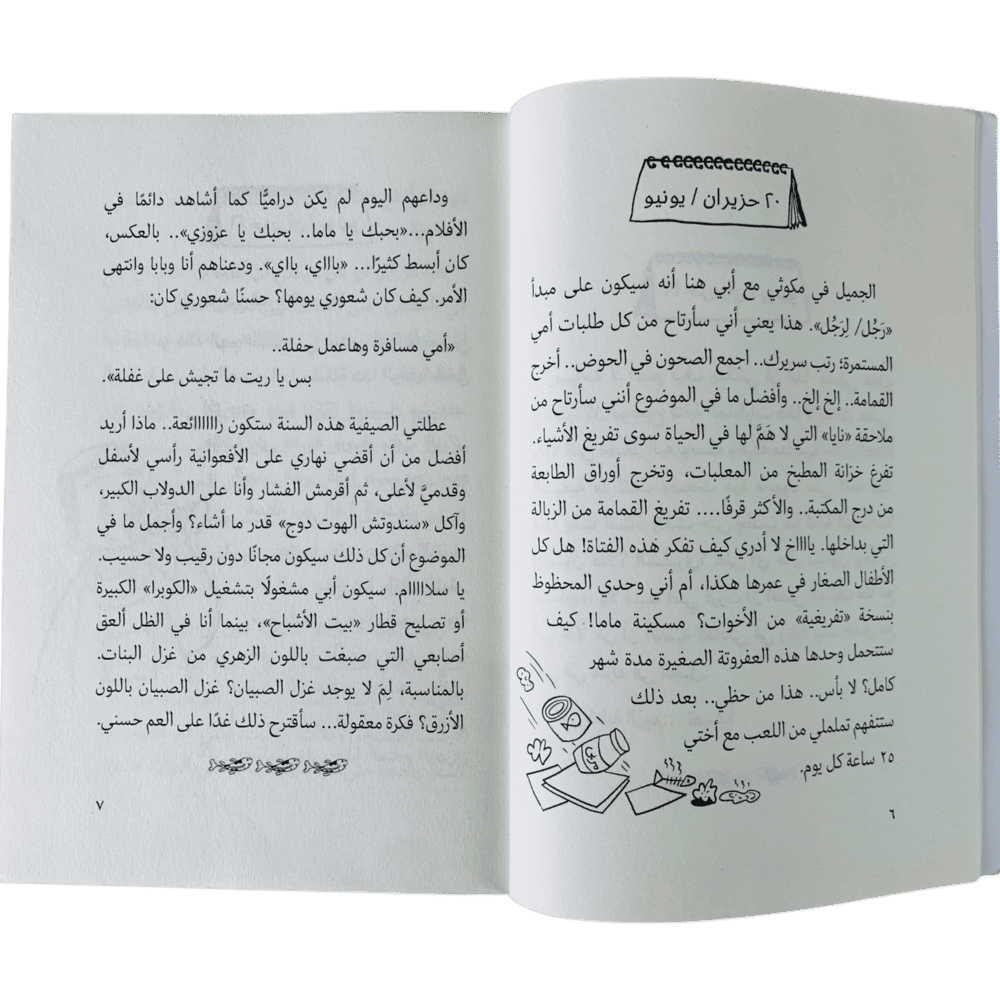 ٢٠ حزيران / يونيو
الجميل في مكوثي مع أبي هنا أنه سيكون على مبدأ
«رَجُل/ لِرَجُل». هذا يعني أني سأرتاح من كل طلبات أمي
المستمرة؛ رتب سريرك.. اجمع الصحون في الحوض.. أخرج
القمامة.. إلخ إلخ.. وأفضل ما في الموضوع أنني سأرتاح من
ملاحقة «نايا» التي لا هَمَّ لها في الحياة سوى تفريغ الأشياء.
تفرغ خزانة المطبخ من المعلبات، وتخرج أوراق الطابعة
من درج المكتبة.. والأكثر قرفًا.... تفريغ القمامة من الزبالة
التي بداخلها. ياااخ لا أدري كيف تفكر هذه الفتاة! هل كل
الأطفال الصغار في عمرها هكذا، أم أني وحدي المحظوظ
بنسخة «تفريغية» من الأخوات؟ مسكينة ماما! كيف
ستتحمل وحدها هذه العفروتة الصغيرة مدة شهر
كامل؟ لا بأس.. هذا من حظي.. بعد ذلك
ستتفهم تململي من اللعب مع أختي
٢٥ ساعة كل يوم.
٦
وداعهم اليوم لم يكن دراميًّا كما أشاهد دائمًا في
الأفلام...«بحبك يا ماما.. بحبك يا عزوزي».. بالعكس،
كان أبسط كثيرًا... «باااي، بااي». ودعناهم أنا وبابا وانتهى
الأمر. كيف كان شعوري يومها؟ حسنًا شعوري كان:
«أمي مسافرة وهاعمل حفلة..
بس يا ريت ما تجيش على غفلة».
عطلتي الصيفية هذه السنة ستكون رااااااائعة.. ماذا أريد
أفضل من أن أقضي نهاري على الأفعوانية رأسي لأسفل
وقدميَّ لأعلى، ثم أقرمش الفشار وأنا على الدولاب الكبير،
وآكل «سندوتش الهوت دوج» قدر ما أشاء؟ وأجمل ما في
الموضوع أن كل ذلك سيكون مجانًا دون رقيب ولا حسيب.
يا سلاااااام. سيكون أبي مشغولًا بتشغيل «الكوبرا» الكبيرة
أو تصليح قطار «بيت الأشباح»، بينما أنا في الظل ألعق
أصابعي التي صبغت باللون الزهري من غزل البنات.
بالمناسبة، لِمَ لا يوجد غزل الصبيان؟ غزل الصبيان باللون
الأزرق؟ فكرة معقولة... سأقترح ذلك غدًا على العم حسني.
٧